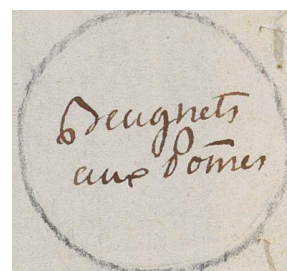 Beugnets
aux Pom̃es